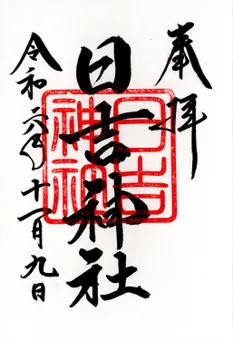 奉拝
日吉神社
日吉神社
令和六年十一月九日